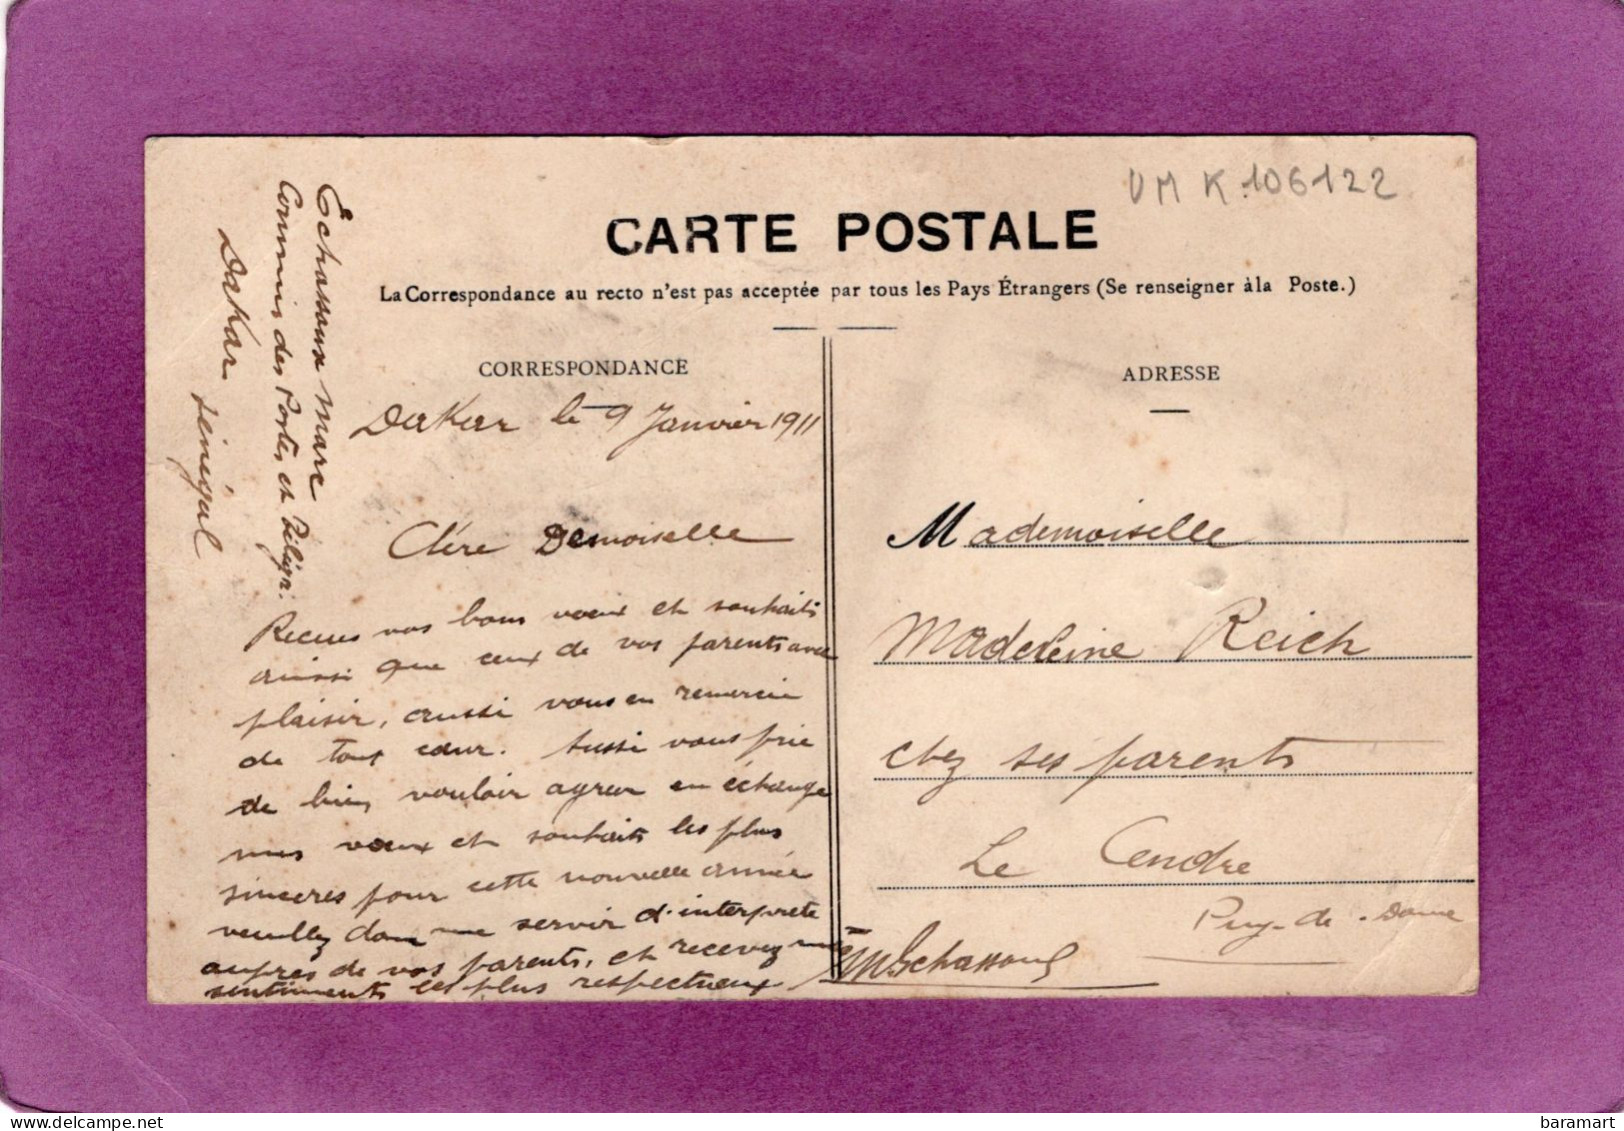 VM K.106122
CARTE POSTALE
La Correspondance au recto n'est pas acceptée par tous les Pays Étrangers (Se renseigner à la Poste.)
CORRESPONDANCE
Dakar le 9 Janvier 1911
Chère Demoiselle
Recues vos bons voeux et souhaits
ainsi que ceux de vos parents avec
plaisir, aussi vous en remercie
de tout cœur. Aussi vous prie
de bien vouloir agreer en échange
mes voeux et souhaits les plus
sinceres pour cette nouvelle année
veuillez donc me servir d'interprete
aupres de vos parents, et recevez mes
sentiments les plus respectueux
MEchassoux
Echassoux Marc
Commis des Postes et Télégr.
Dakar
Sénégal
ADRESSE
Mademoiselle
Madeleine Reich
chez ses parents
Le Cendre
Puy-de-Dome
delcampe.net
baramart